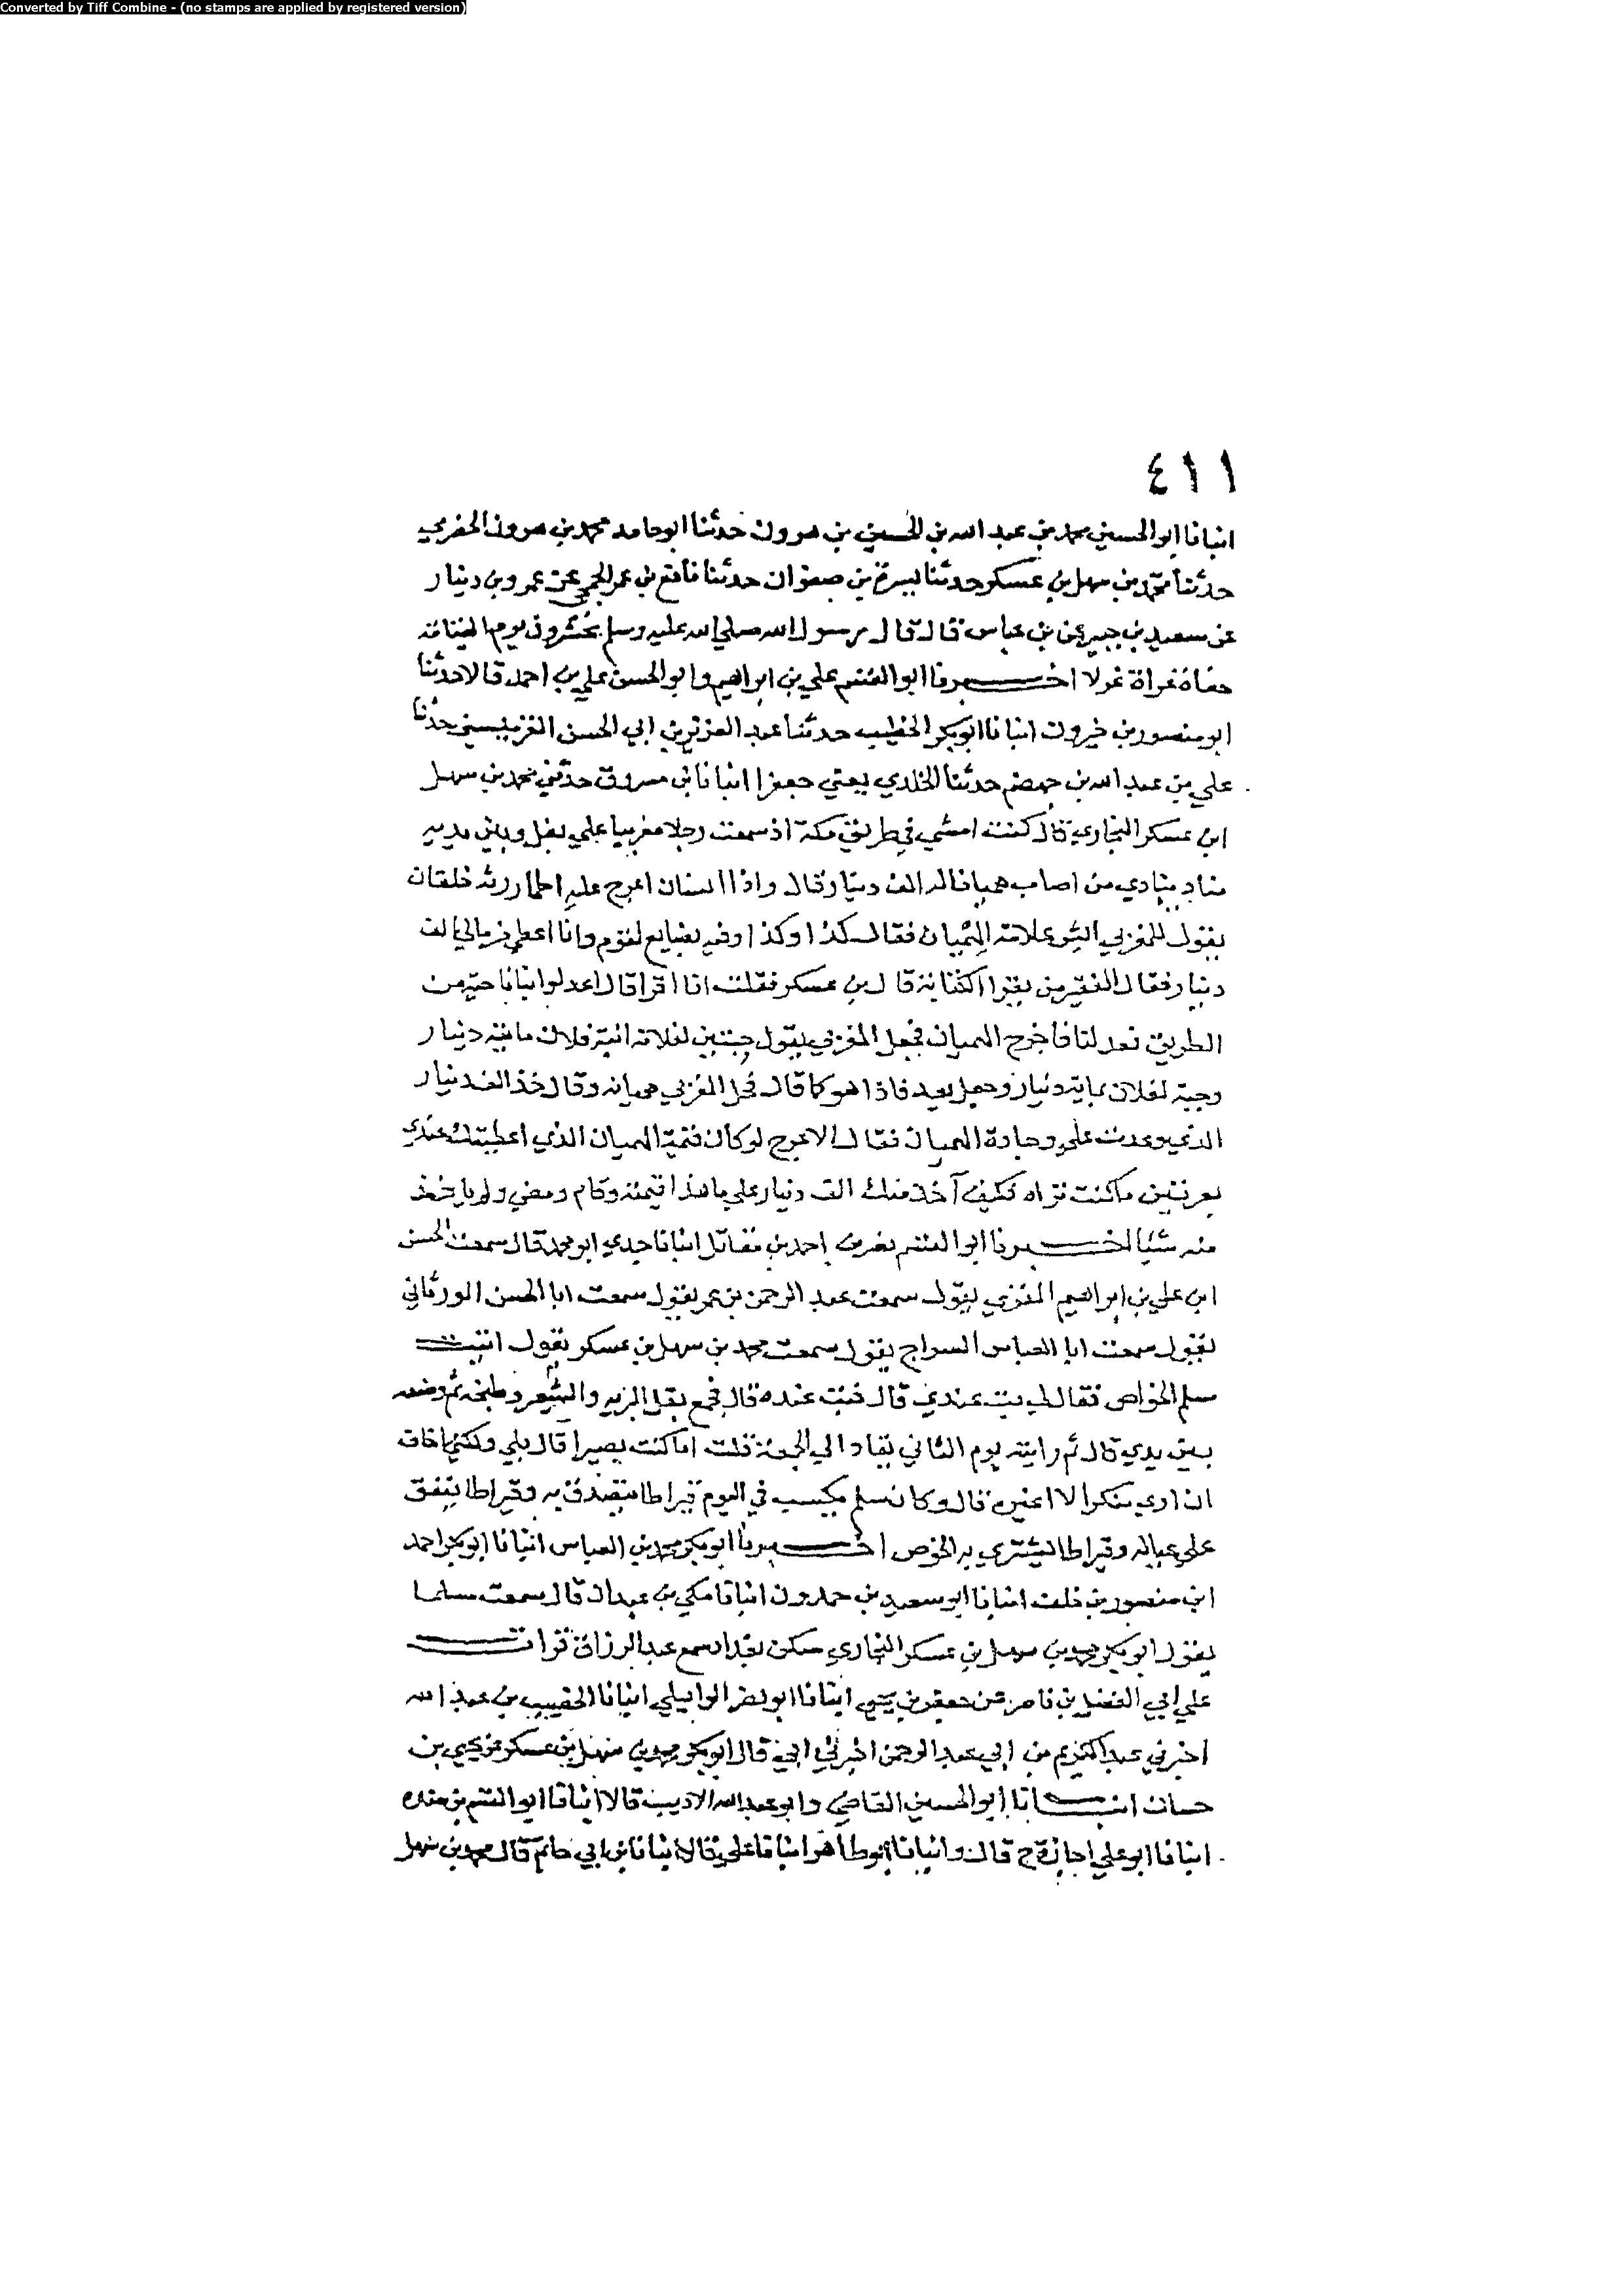 Converted by Tiff Combine - (no stamps are applied by registered version)
٤١١
انبانا ابو الحسين محمد بن عبد الله بن الحسين بن هرون حدثنا ابو حامد محمد بن هرون الحضرمي
حدثنا محمد بن سهل بن عسكر حدثنا بسرة بن صفوان حدثنا نافع بن عمر الجمحي عن عمرو بن دينار
عن سعيد بن جبير عن بن عباس قال قال رسول الله صلي الله عليه وسلم يحشرون يوم القيامة
حفاة عراة غرلا اخبرنا ابو القسم علي بن ابراهيم وابو الحسن علي بن احمد قالا حدثنا
ابو منصور بن خيرون انبانا ابو بكر الخطيب حدثنا عبد العزيز بن ابي الحسن القرميسيني حدثنا
علي بن عبد الله بن جهضم حدثنا الخلدي يعني جعفرا انبانا بن مسروق حدثني محمد بن سهل
ابن عسكر البخاري قال كنت امشي في طريق مكة اذ سمعت رجلا مغربيا علي بغل وبين يديه
مناد ينادي من اصاب هميانا له الف دينار قال واذا انسان اعرج عليه اطمار رثة خلقان
يقول للمغربي ايش علامة الهميان فقال كذا وكذا وفيه بضايع لقوم وانا اعطي من مالي الف
دينار فقال الفقير من يقرا الكتابة قال بن عسكر فقلت انا اقرا قال اعدلوا بنا ناحية من
الطريق فعدلنا فاخرج الهميان فجعل المغربي يقول حبتين لفلانة ابنة فلان ماية دينار
وحبة لفلان بماية دينار وجعل يعد فاذا هو كما قال فحل المغربي هميانه وقال خذ الف دينار
الذي وعدت علي وجادة الهميان فقال الاعرج لو كان قيمة الهميان الذي اعطيتك عندي
بعرتين ما كنت تراه فكيف آخذ منك الف دينار علي ما هذا قيمته وقام ومضي ولم ياخذ
منه شيا اخبرنا ابو القسم نصر بن احمد بن مقاتل انبانا جدي ابو محمد قال سمعت الحسن
ابن علي بن ابراهيم المقري يقول سمعت عبد الرحمن بن عمر يقول سمعت ابا الحسن الورثاني
يقول سمعت ابا العباس السراج يقول سمعت محمد بن سهل بن عسكر يقول اتيت
سلم الخواص فقال لي بت عندي قال فبت عنده قال فجمع بقل البرية والشعير وطبخه ثم وضعه
بين يدي قال ثم رايته يوم الثاني يقاد الي الجمعة قلت اما كنت بصيرا قال بلي ولكني اخاف
ان اري منكرا لا اغيره قال وكان سلم يكسب في اليوم قيراطا يتصدق به وقيراطا ينفق
علي عياله وقيراطا يشتري به الخوص اخبرنا ابو بكر محمد بن العباس انبانا ابو بكر احمد
ابن منصور بن خلف انبانا ابو سعيد بن حمدون انبانا مكي بن عبدان قال سمعت مسلما
يقول ابو بكر محمد بن سهل بن عسكر البخاري سكن بغداد سمع عبد الرزاق قرات
علي ابي الفضل بن ناصر عن جعفر بن يحيي انبانا ابو نصر الوايلي انبانا الخصيب بن عبد الله
اخبرني عبد الكريم بن ابي عبد الرحمن اخبرني ابي قال ابو بكر محمد بن سهل بن عسكر عن يحيي بن
حسان انبانا ابو الحسين القاضي وابو عبد الله الاديب قالا انبانا ابو القسم بن منده
انبانا ابو علي اجازة ح قال وانبانا ابو طاهر انبانا علي قالا انبانا بن ابي حاتم قال محمد بن سهل